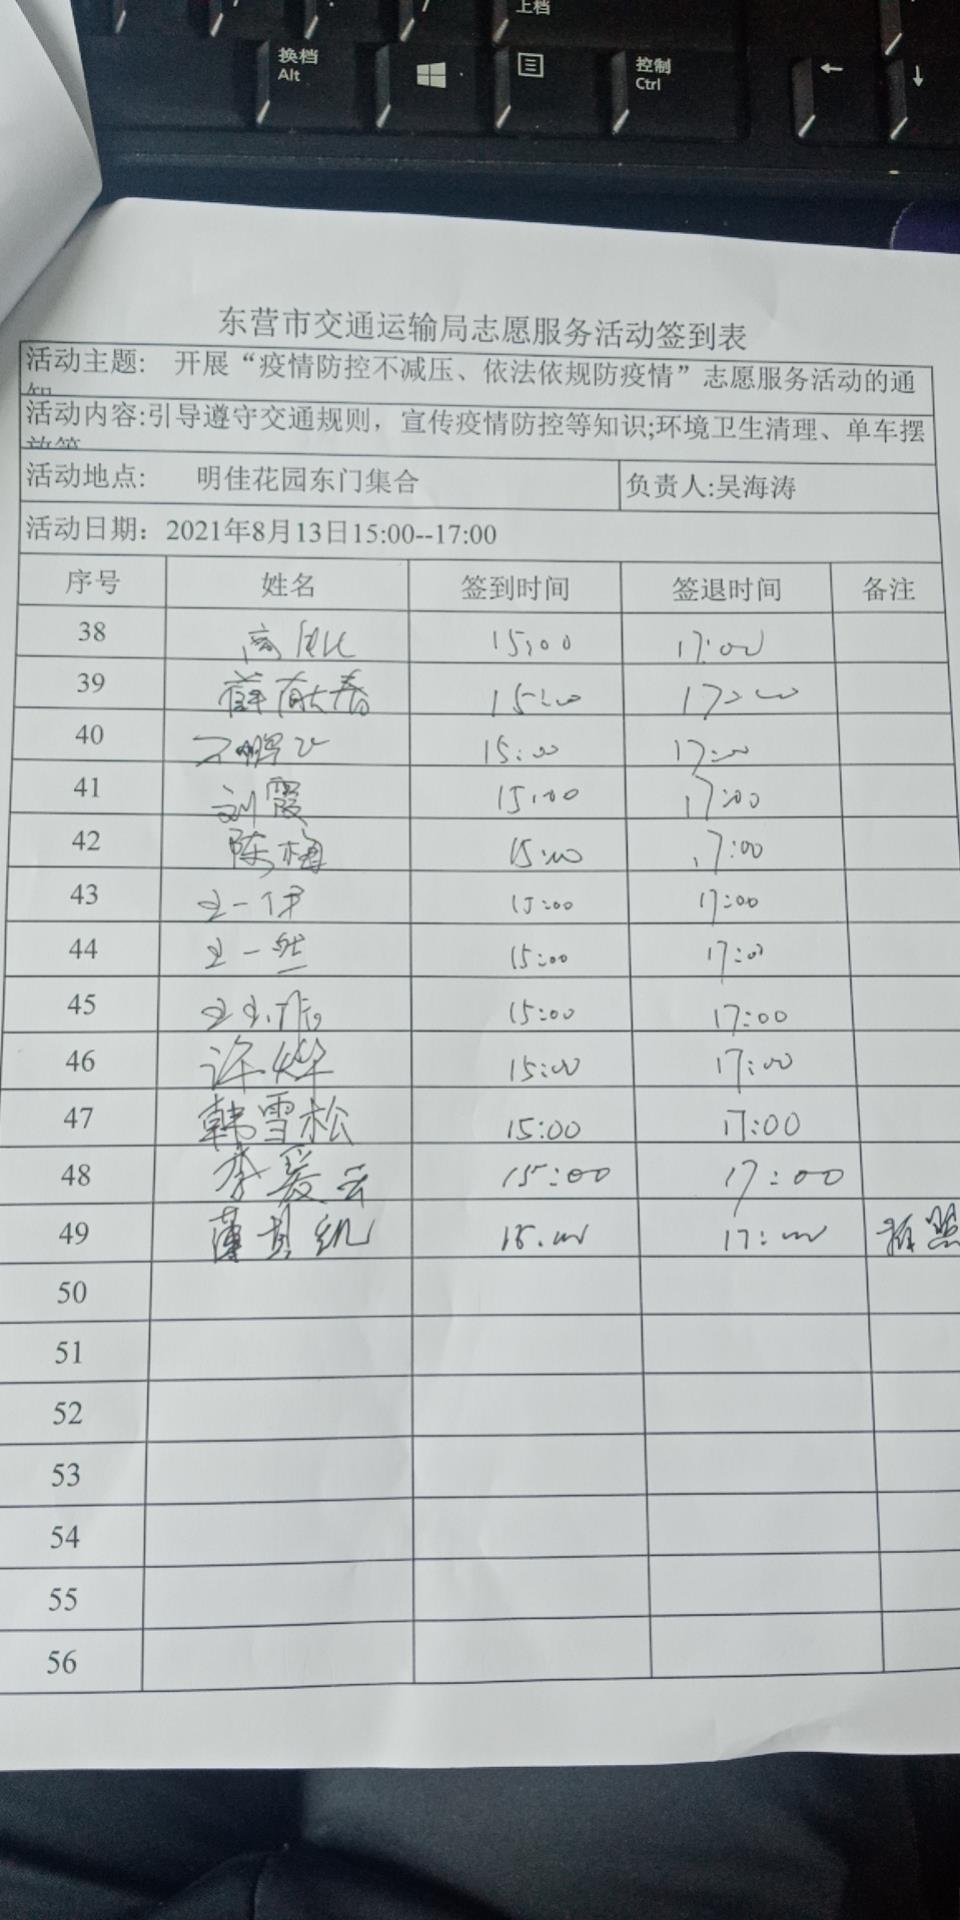 上档
换档
Alt
控制
Ctrl
东营市交通运输局志愿服务活动签到表
活动主题: 开展“疫情防控不减压、依法依规防疫情”志愿服务活动的通
知
活动内容:引导遵守交通规则，宣传疫情防控等知识;环境卫生清理、单车摆
放等
活动地点: 明佳花园东门集合 负责人:吴海涛
活动日期：2021年8月13日15:00--17:00
序号 姓名 签到时间 签退时间 备注
38 15:00 17:00
39 薛献春 15:00 17:00
40 15:00 17:00
41 刘霞 15:00 17:00
42 陈梅 15:00 17:00
43 王一伊 15:00 17:00
44 王一然 15:00 17:00
45 15:00 17:00
46 许烨 15:00 17:00
47 韩雪松 15:00 17:00
48 李爱云 15:00 17:00
49 15:00 17:00
50
51
52
53
54
55
56